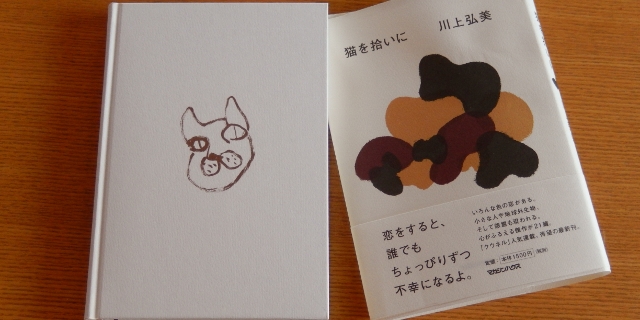 猫を拾いに
川上弘美
恋をすると、
誰でも
ちょっぴりずつ
不幸になるよ。
いろんな色の恋がある。
小さな人や地球外生物、
そして怨霊も現われる。
心がふるえる傑作が21編。
「クウネル」人気連載、待望の最新刊。
定価:本体1500円(税別)
マガジンハウス